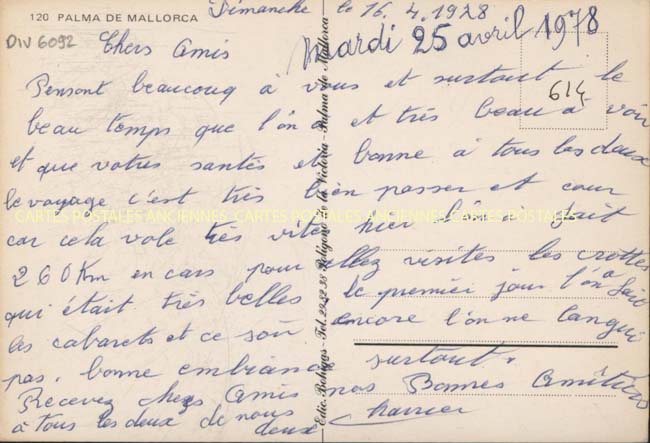 120 PALMA DE MALLORCA
Dimanche le 16.4.1978
DIV 6092
Mardi 25 avril 1978
Chers Amis
614
Pensont beaucoup à vous et surtout le
beau temps que l'on a et très beau à voir
et que votres santés et bonne à tous les deux
le voyage c'est très bien passer et cour
CARTES POSTALES ANCIENNES CARTES POSTALES ANCIENNES CARTES POSTALES
car cela vole très vite hier fait
260 Km en cars pour allez visites les crottes
qui était très belles le premier jour l'on a fait
les cabarets et ce soir encore l'on ne langui
pas, bonne embiance surtout.
Recevez chers Amis nos Bonnes Amitiés
à tous les deux de nous deux
Edic. Bohigas - Tel. 22 82 35 Polígono de la Victoria - Palma de Mallorca